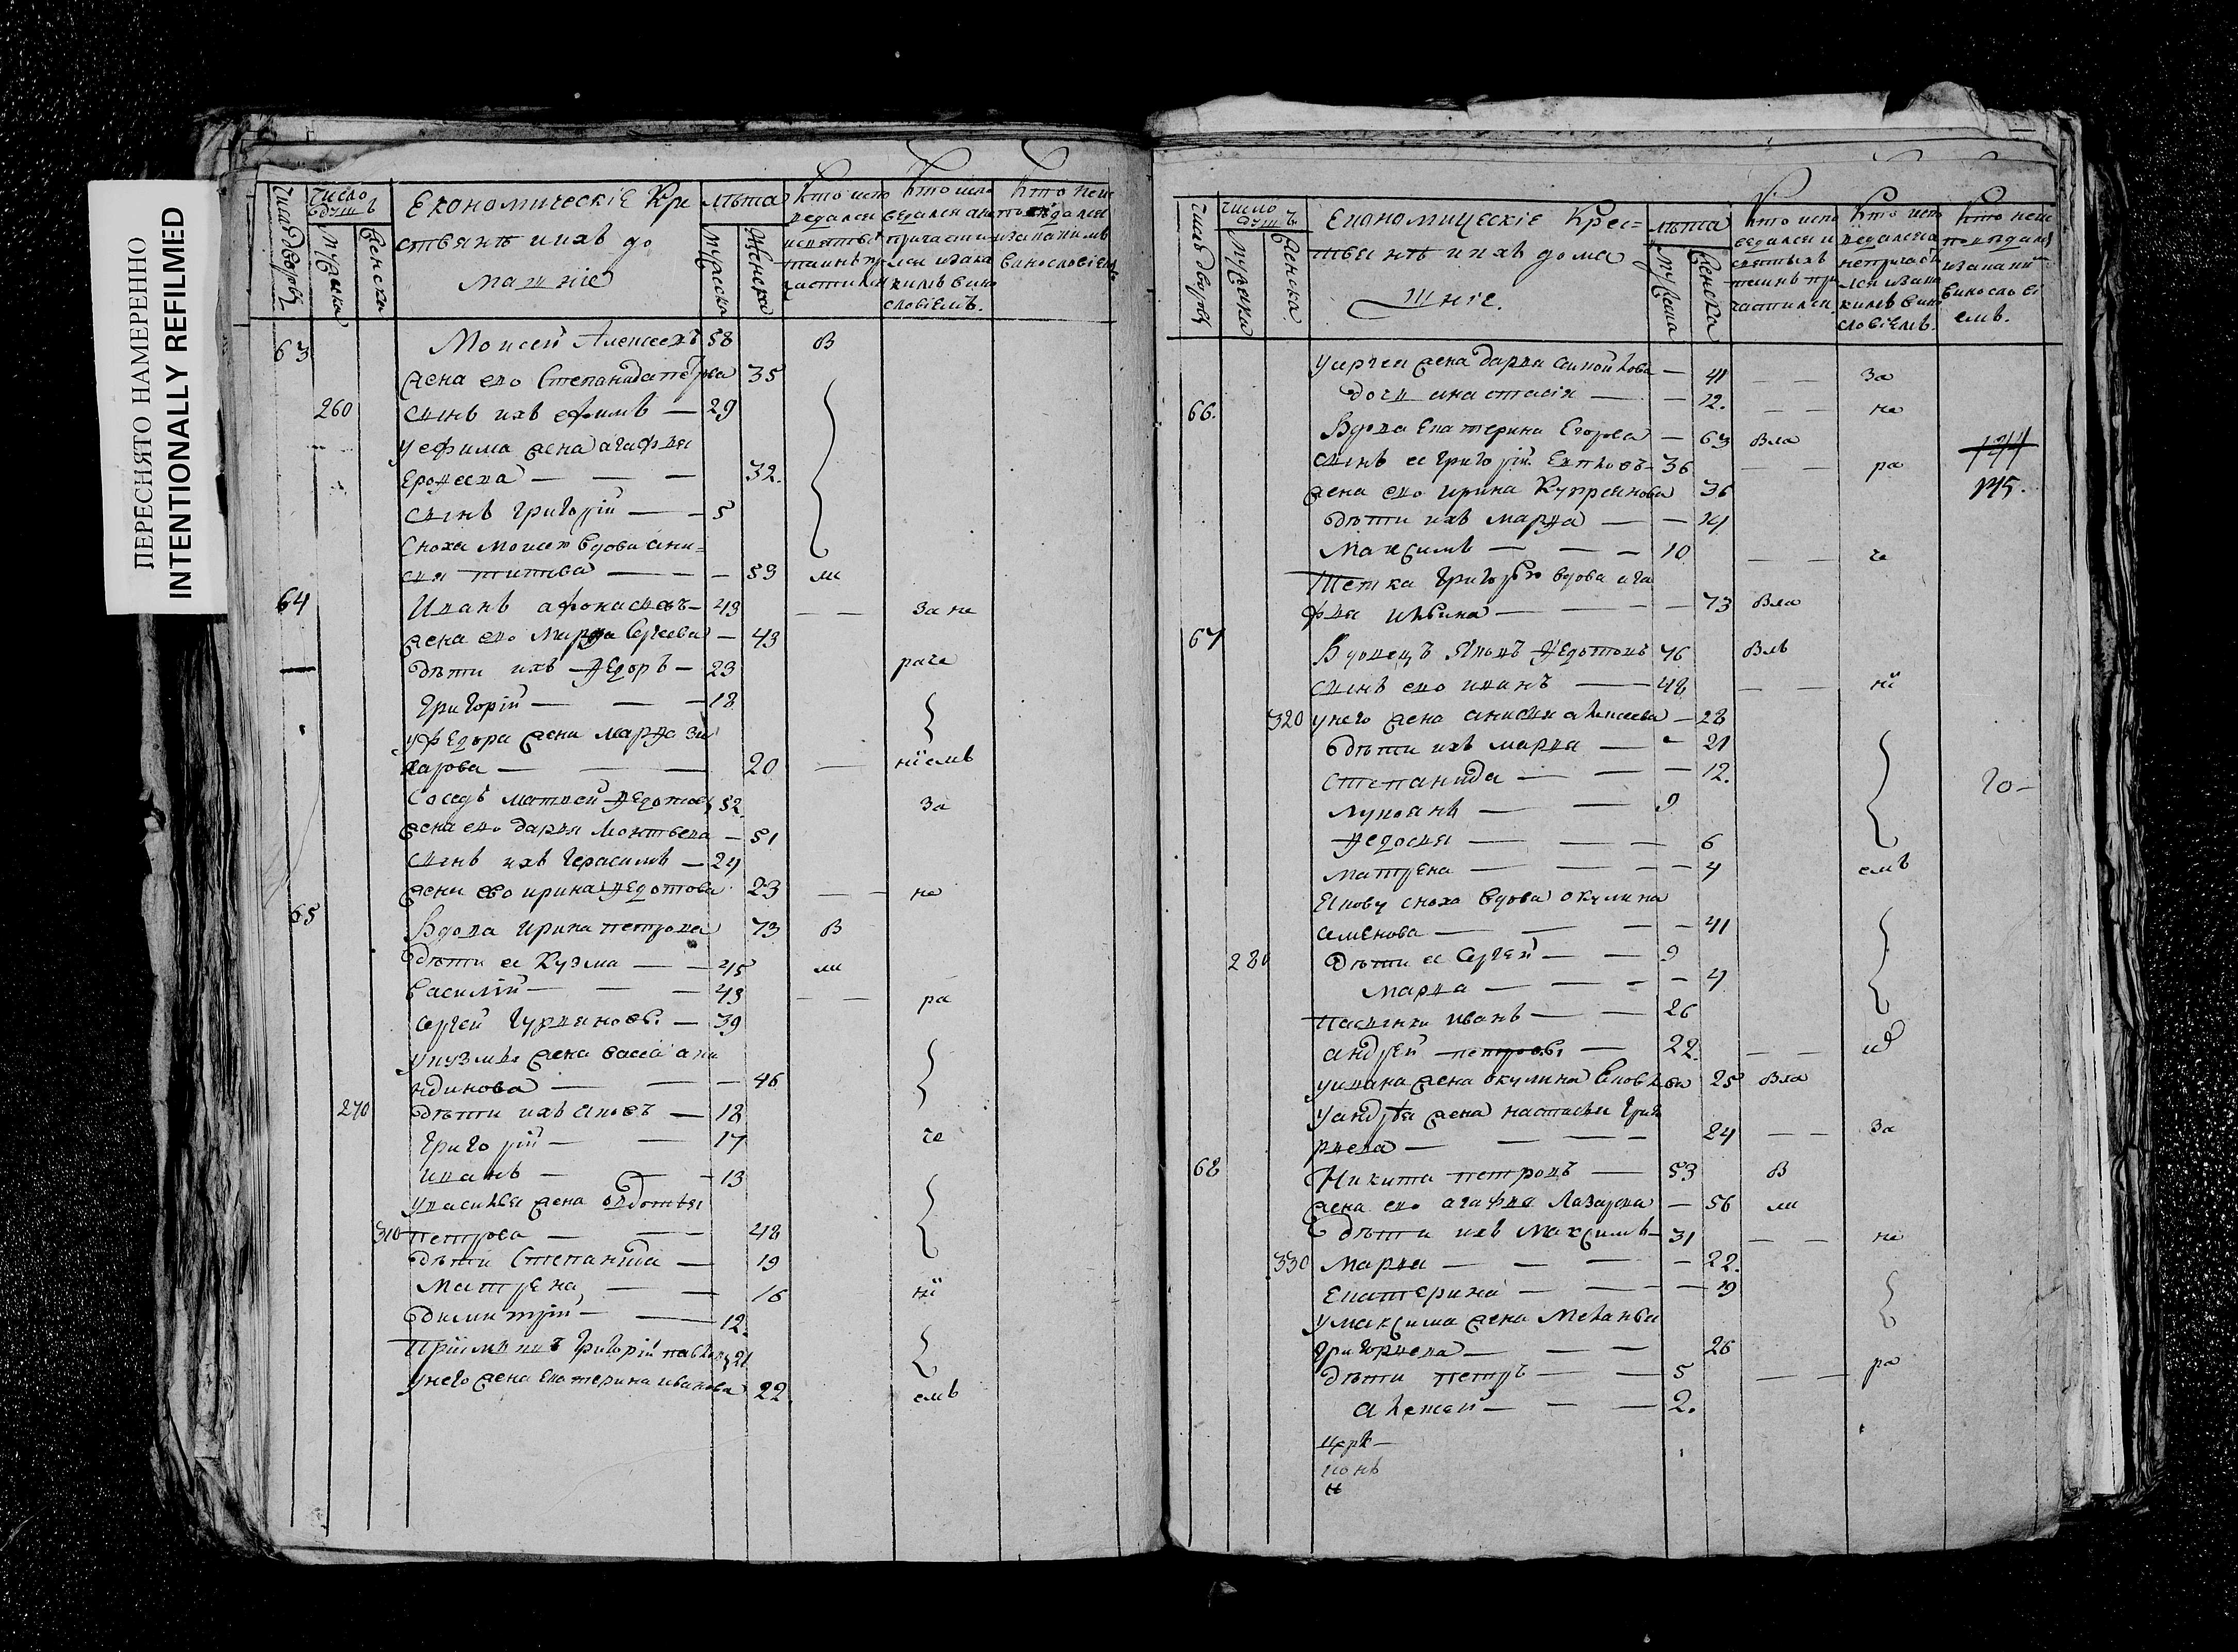 ПЕРЕСНЯТО НАМЕРЕННО
INTENTIONALLY REFILMED
Число дворовъ
Число душъ
Мужеска
Женска
Економическіе Кре
ствянъ и ихъ до
машніе
лѣта
Мужеска
Женска
Кто испо
ведался
Кто испо
ведался а не
причасти
лся и за ка
кимъ вино
словіемъ.
Кто не ис
поведался
и за какимъ
винословіемъ
63 Моисей Алексеевъ 58 В
жена ево Степанида петрова 35
260 сынъ ихъ ефимъ — 29
у ефима жена агафья
32.
сынъ григорій — — 5
Сноха вдова ани=
сья титова — — — 53 ли
64 Иванъ афонасьевъ — 43 — — За не
жена ево Марфа Сергеева — 43
дѣти ихъ Федоръ — 23 раче
Григорій — — — 18
у федора жена марфа За
харова — — — 20 — ніемъ
Соседъ матвей Федотовъ 52 За
жена ево дарья — 51
сынъ ихъ герасимъ — 24
жена ево ирина Федотова 23 — — не
65 Вдова Ирина петрова 73 В
дѣти ее Кузма — — 45 ли
Василій — — — 43 — — ра
Сергей — 39
у кузмы жена васса
— — — 46
270 дѣти ихъ яковъ — 18
Григорій — — 17 че
Иванъ — — — 13
у василья жена овдотья
310 петрова — — — 48
дѣти Степанида — 19
Матрена — — 16 ні
димитрій — — 12.
Пріимышъ Григорій 21
у него жена Екатерина иванова 22. емъ
Число дворовъ
Число душъ
Мужеска
Женска.
Економическіе Крес=
твянъ и ихъ дома
шніе.
лѣта
Мужеска
Женска
Кто испо
ведался и
святыхъ
таинъ при
частился.
Кто испо
ведался а
не причас
лся и за ка
кимъ вино
словіемъ.
Кто не ис
поведался
и за каки
винослові
емъ.
у сергея жена дарья — 41 — — За
дочь анастасія — — 12. — — не
66. Вдова Екатерина Егорова — 63 Вла
сынъ ее григорій 36 — — ра 144
жена ево ирина Купреянова 36 145.
дѣти ихъ марфа — — 14
Максимъ — — — 10 — — че
Тетка Григорью вдова ага
фья — — — — 73 Вла
67 Вдовецъ Яковъ Федотовъ 76 Влъ
сынъ ево иванъ — — 48 — — ні
320 у него жена анисья алексеева — 28
дѣти ихъ марья — — 21
Степанида — — — 12. 20 —
лукьянъ — — 9
Федосья — — — 6
матрена — — — 4 емъ
Якову сноха вдова окулина
семенова — — — — 41
280 Дѣти ее Сергей — — 9
марья — — — — 4
пасынки иванъ — — 26
андрей петровы — 22. — —
у ивана жена окулина 25 Вла
у андрея жена настасья григо
рьева — — — — 24 — — За
68 Никита петровъ — 53 В
жена ево агафья Лазарева — 56 ли
дѣти ихъ Максимъ — 31 — — не
330 Марья — — — — 22.
Екатерина — — — 19
у максима жена Меланья
григорьева — — — 26
дѣти петръ — — 5 — — ра
алексей — — — 2.